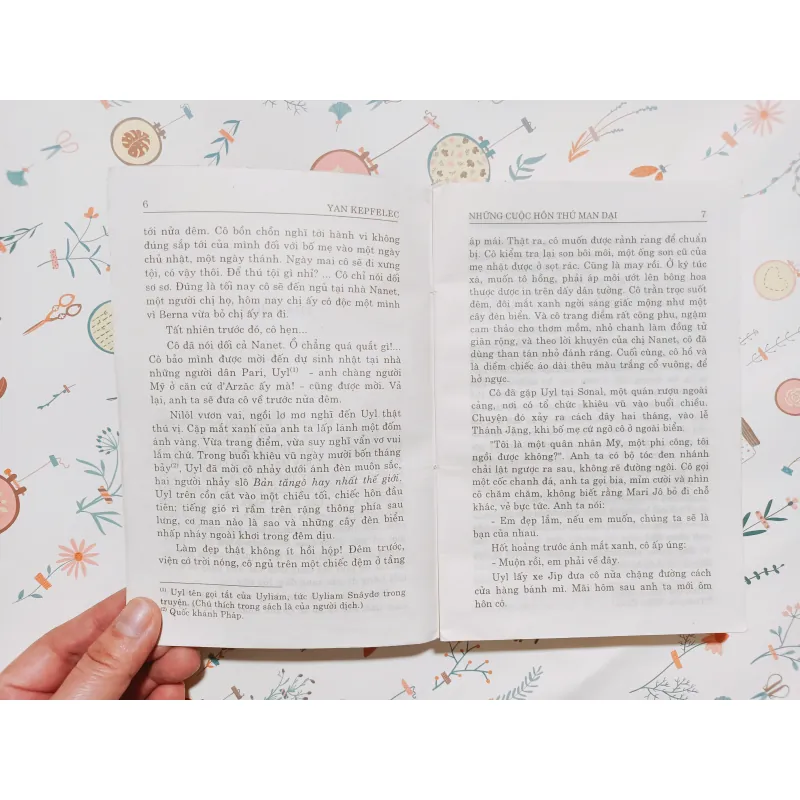 6
YAN KEPFELEC
tới nửa đêm. Cô bồn chồn nghĩ tới hành vi không
đúng sắp tới của mình đối với bố mẹ vào một ngày
chủ nhật, một ngày thánh. Ngày mai cô sẽ đi xưng
tội, có vậy thôi. Để thú tội gì nhỉ? ... Cô chỉ nói dối
sơ sơ. Đúng là tối nay cô sẽ đến ngủ tại nhà Nanet,
một người chị họ, hôm nay chị ấy có độc một mình
vì Berna vừa bỏ chị ấy ra đi.
Tất nhiên trước đó, cô hẹn...
Cô đã nói dối cả Nanet. Ồ chẳng quá quắt gì!...
Cô bảo mình được mời đến dự sinh nhật tại nhà
những người dân Pari, Uyl(1) - anh chàng người
Mỹ ở căn cứ d'Arzăc ấy mà! - cũng được mời. Vả
lại, anh ta sẽ đưa cô về trước nửa đêm.
Nilôl vươn vai, ngồi lơ mơ nghĩ đến Uyl thật
thú vị. Cặp mắt xanh của anh ta lấp lánh một đốm
ánh vàng. Vừa trang điểm, vừa suy nghĩ vẩn vơ vui
lắm chứ. Trong buổi khiêu vũ ngày mười bốn tháng
bảy(2), Uyl đã mời cô nhảy dưới ánh đèn muôn sắc,
hai người nhảy slô Bản tăngô hay nhất thế giới.
Uyl trên cồn cát vào một chiều tối, chiếc hôn đầu
tiên; tiếng gió rì rầm trên rặng thông phía sau
lưng, cơ man nào là sao và những cây đèn biển
nhấp nháy ngoài khơi trong đêm dịu.
Làm đẹp thật không ít hồi hộp! Đêm trước,
viện cớ trời nóng, cô ngủ trên một chiếc đệm ở tầng
(1) Uyl tên gọi tắt của Uyliam, tức Uyliam Snâyđơ trong
truyện. (Chú thích trong sách là của người dịch.)
(2) Quốc khánh Pháp.
NHỮNG CUỘC HÔN THÚ MAN DẠI
7
áp mái. Thật ra, cô muốn được rảnh rang để chuẩn
bị. Cô kiểm tra lại son bôi môi, một ống son cũ của
mẹ nhặt được ở sọt rác. Cũng là may rồi. Ở ký túc
xá, muốn tô hồng, phải áp môi ướt lên bông hoa
thược dược in trên dấy dán tường. Cô trằn trọc suốt
đêm, đôi mắt xanh ngời sáng giấc mộng như một
cây đèn biển. Và cô trang điểm rất công phu, ngậm
cam thảo cho thơm mồm, nhỏ chanh làm đồng tử
giãn rộng, và theo lời khuyên của chị Nanet, cô đã
dùng than tán nhỏ đánh răng. Cuối cùng, cô hồ và
là diềm chiếc áo dài thêu màu trắng cổ vuông, để
hở ngực.
Cô đã gặp Uyl tại Sonal, một quán rượu ngoài
cảng, nơi có tổ chức khiêu vũ vào buổi chiều.
Chuyện đó xảy ra cách đây hai tháng, vào lễ
Thánh Jăng, khi bố mẹ cứ ngỡ cô ở ngoài biển.
"Tôi là một quân nhân Mỹ, một phi công, tôi
ngồi được không?". Anh ta có bộ tóc đen nhánh
chải lật ngược ra sau, không rẽ đường ngôi. Cô gọi
một cốc chanh đá, anh ta gọi bia, mỉm cười và nhìn
cô chăm chăm, không biết rằng Mari Jô bỏ đi chỗ
khác, vẻ bực tức. Anh ta nói:
- Em đẹp lắm, nếu em muốn, chúng ta sẽ là
bạn của nhau.
Hốt hoảng trước ánh mắt xanh, cô ấp úng:
- Muộn rồi, em phải về đây.
Uyl lấy xe Jip đưa cô nửa chặng đường cách
cửa hàng bánh mì. Mãi hôm sau anh ta mới ôm
hôn cô.